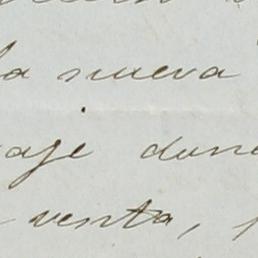 la nueva
aje dura
venta,